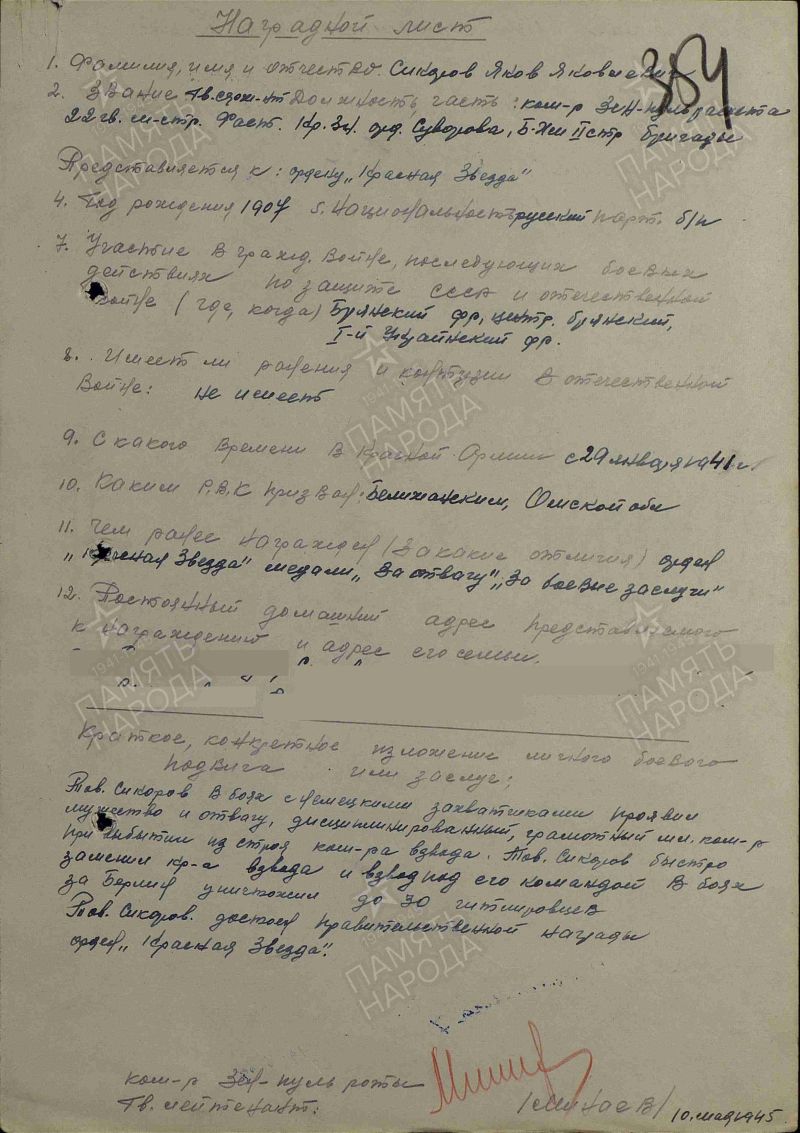 Наградной лист
384
1. Фамилия, имя и отчество. Сикоров Яков Яковлевич
2. Звание Гв. серж-нт Должность, часть: ком-р Зен-пульрасчета
22 гв. м-стр. Фаст. Кр. Зн. орд. Суворова, Б-Хм II стр бригады
Представляется к: ордену „Красная Звезда"
4. Год рождения 1907 5. Национальность русский парт. б/п
7. Участие в гражд. войне, последующих боевых
действиях по защите СССР и отечественной
войне (где, когда) Брянский фр, центр. брянский,
I-й Украинский фр.
8. Имеет ли ранения и контузии в отечественной
Войне: не имеет
9. С какого времени в Красной Армии с 29 января 1941 г.
10. Каким Р.В.К призван: Омской обл
11. Чем ранее награжден (за какие отличия) орден
„Красная Звезда" медали „За отвагу", „За боевые заслуги"
12. Постоянный домашний адрес представляемого
к награждений и адрес его семьи.
Краткое, конкретное изложение личного боевого
подвига или заслуг;
Тов. Сикоров в боях с немецкими захватчиками проявил
мужество и отвагу, дисциплинированный, грамотный мл. ком-р
при выбытии из строя ком-ра взвода. Тов. Сикоров быстро
заменил ком-ра взвода и взвод под его командой в боях
за Берлин уничтожил до 30 гитлировцев
Тов. Сикоров. достоен правительственной награды
орден „Красная Звезда".
ком-р Зен-пуль роты
Гв. лейтенант:
/Минаев/
10. мая 1945
ПАМЯТЬ НАРОДА
1941-1945